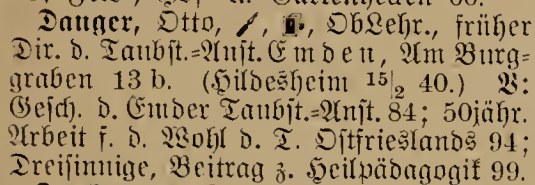 Danger, Otto, ObLehr., früher
Dir. d. Taubst.=Anst. Emden, Am Burg-
graben 13 b. (Hildesheim 15/2 40.) V:
Gesch. d. Emder Taubst.=Anst. 84; 50jähr.
Arbeit f. d. Wohl d. T. Ostfrieslands 94;
Dreisinnige, Beitrag z. Heilpädagogik 99.